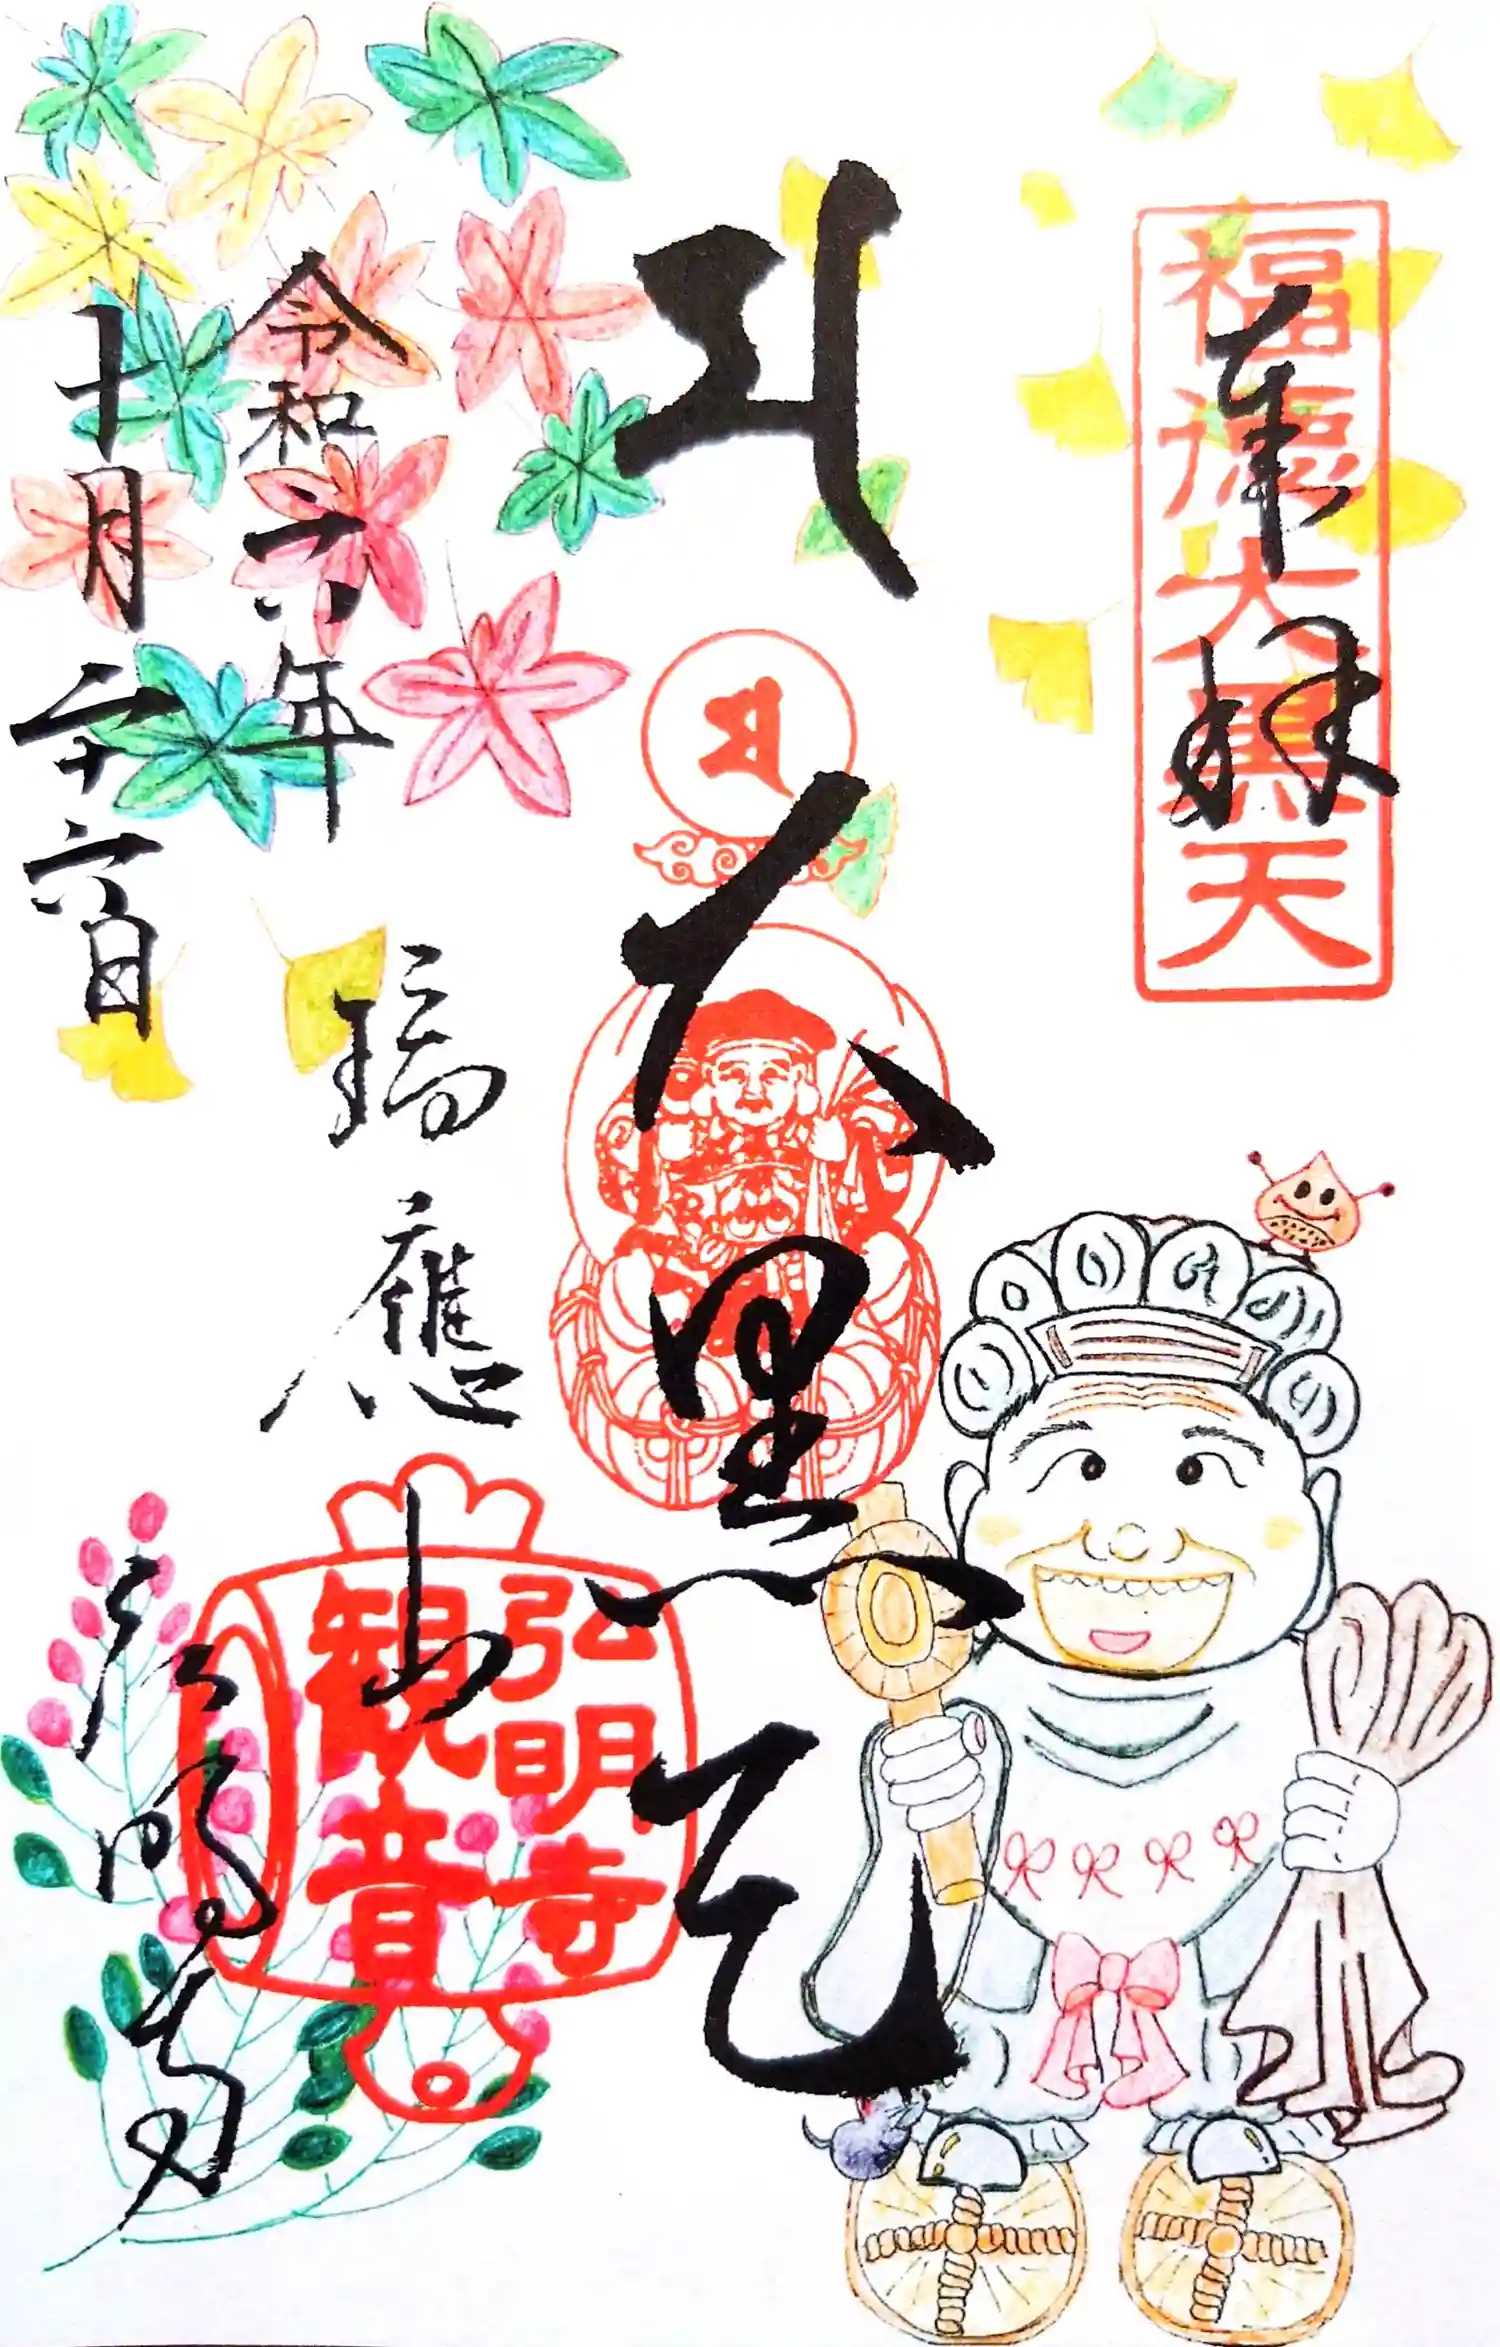 奉拝
福徳大黒天
大黒天
令和六年
十月二十六日
瑞應山
弘明寺
弘明寺
観音